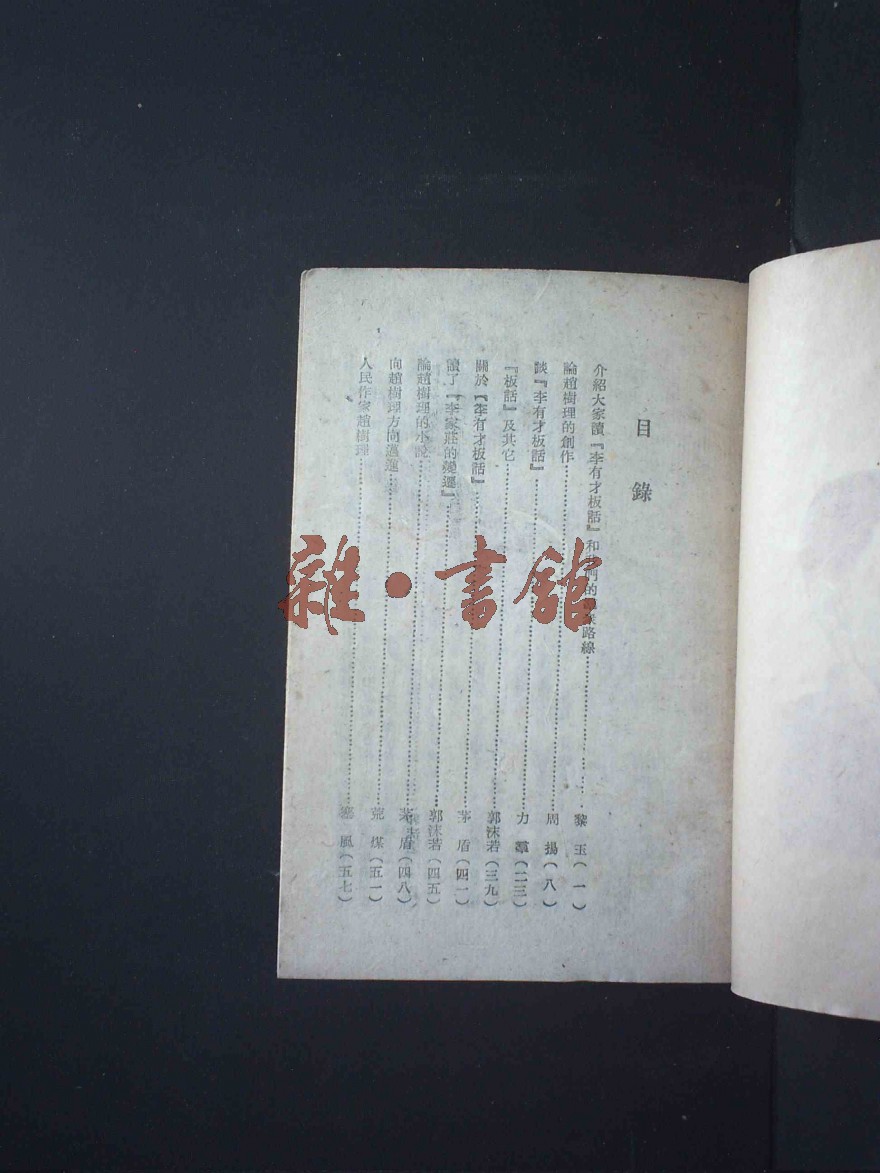 目錄
介紹大家讀『李有才板話』和我們的羣衆路線 黎玉(一)
論趙樹理的創作 周揚(八)
談『李有才板話』 力羣(二三)
『板話』及其它 郭沫若(三九)
關於『李有才板話』 茅盾(四一)
讀了『李家莊的變遷』 郭沫若(四五)
論趙樹理的小說 茅盾(四八)
向趙樹理方向邁進 荒煤(五一)
人民作家趙樹理 (五七)
雜·書館